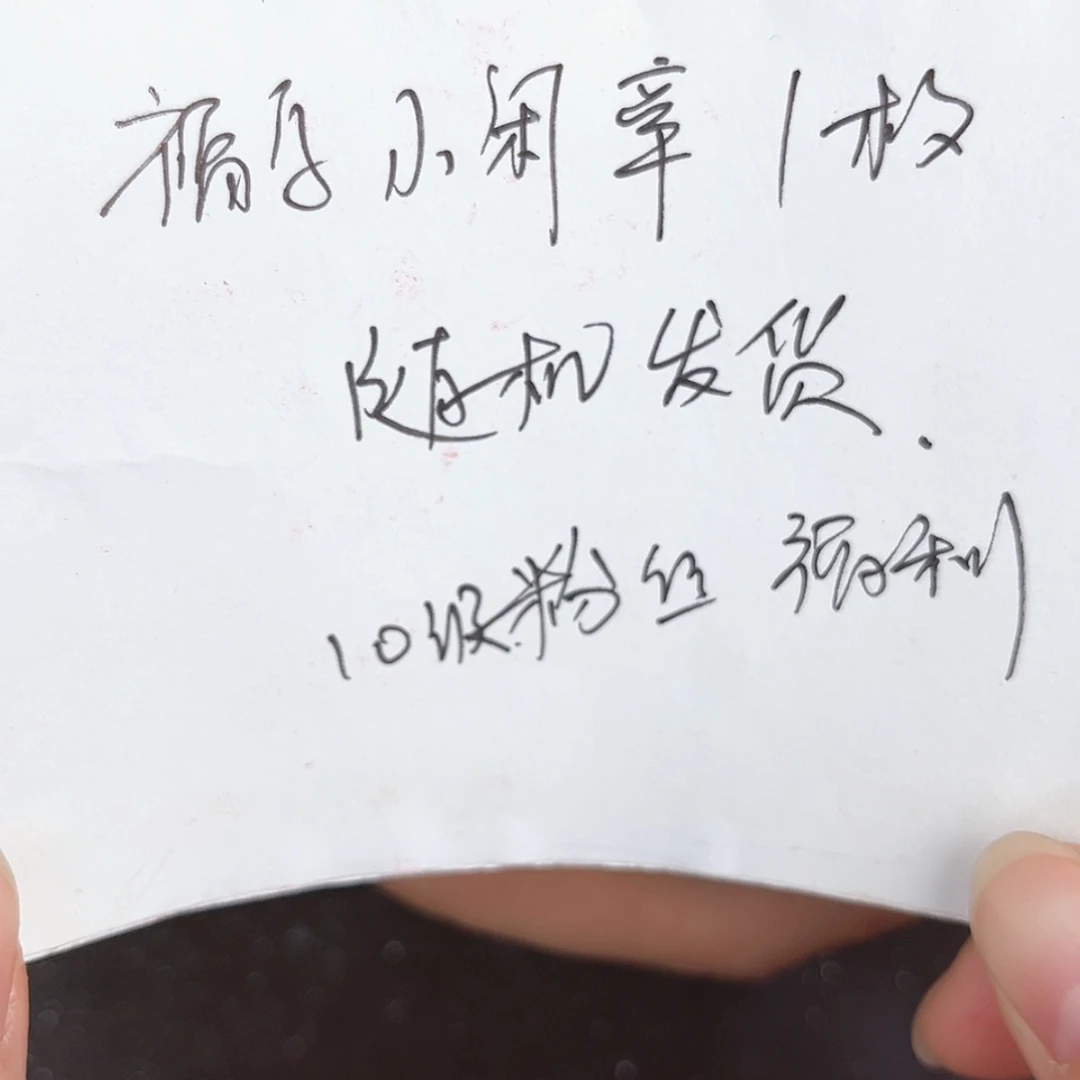 福字小闲章1枚
随机发货.
10级粉丝 福利